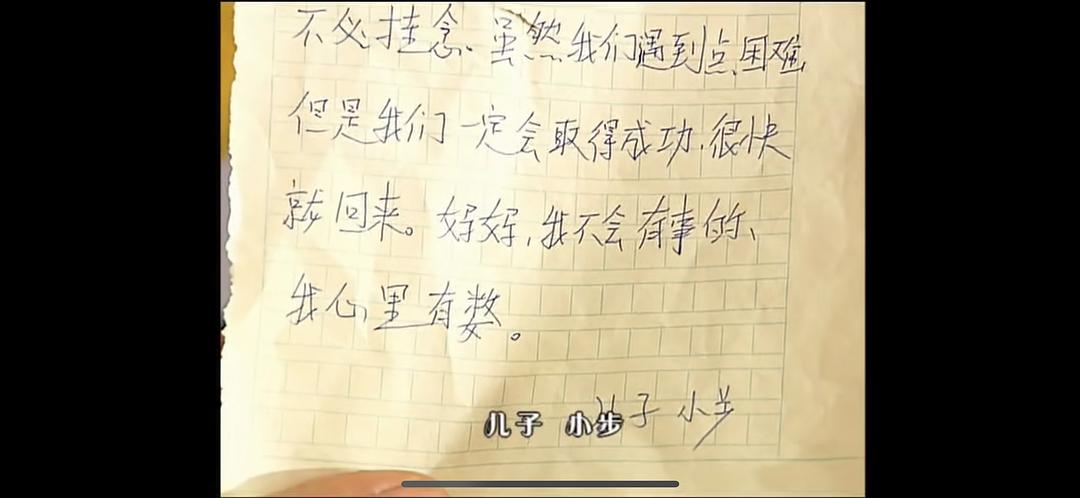 不必挂念、虽然我们遇到点困难
但是我们一定会取得成功,很快
就回来。好好,我不会有事的、
我心里有数。
儿子 小步
儿子 小步